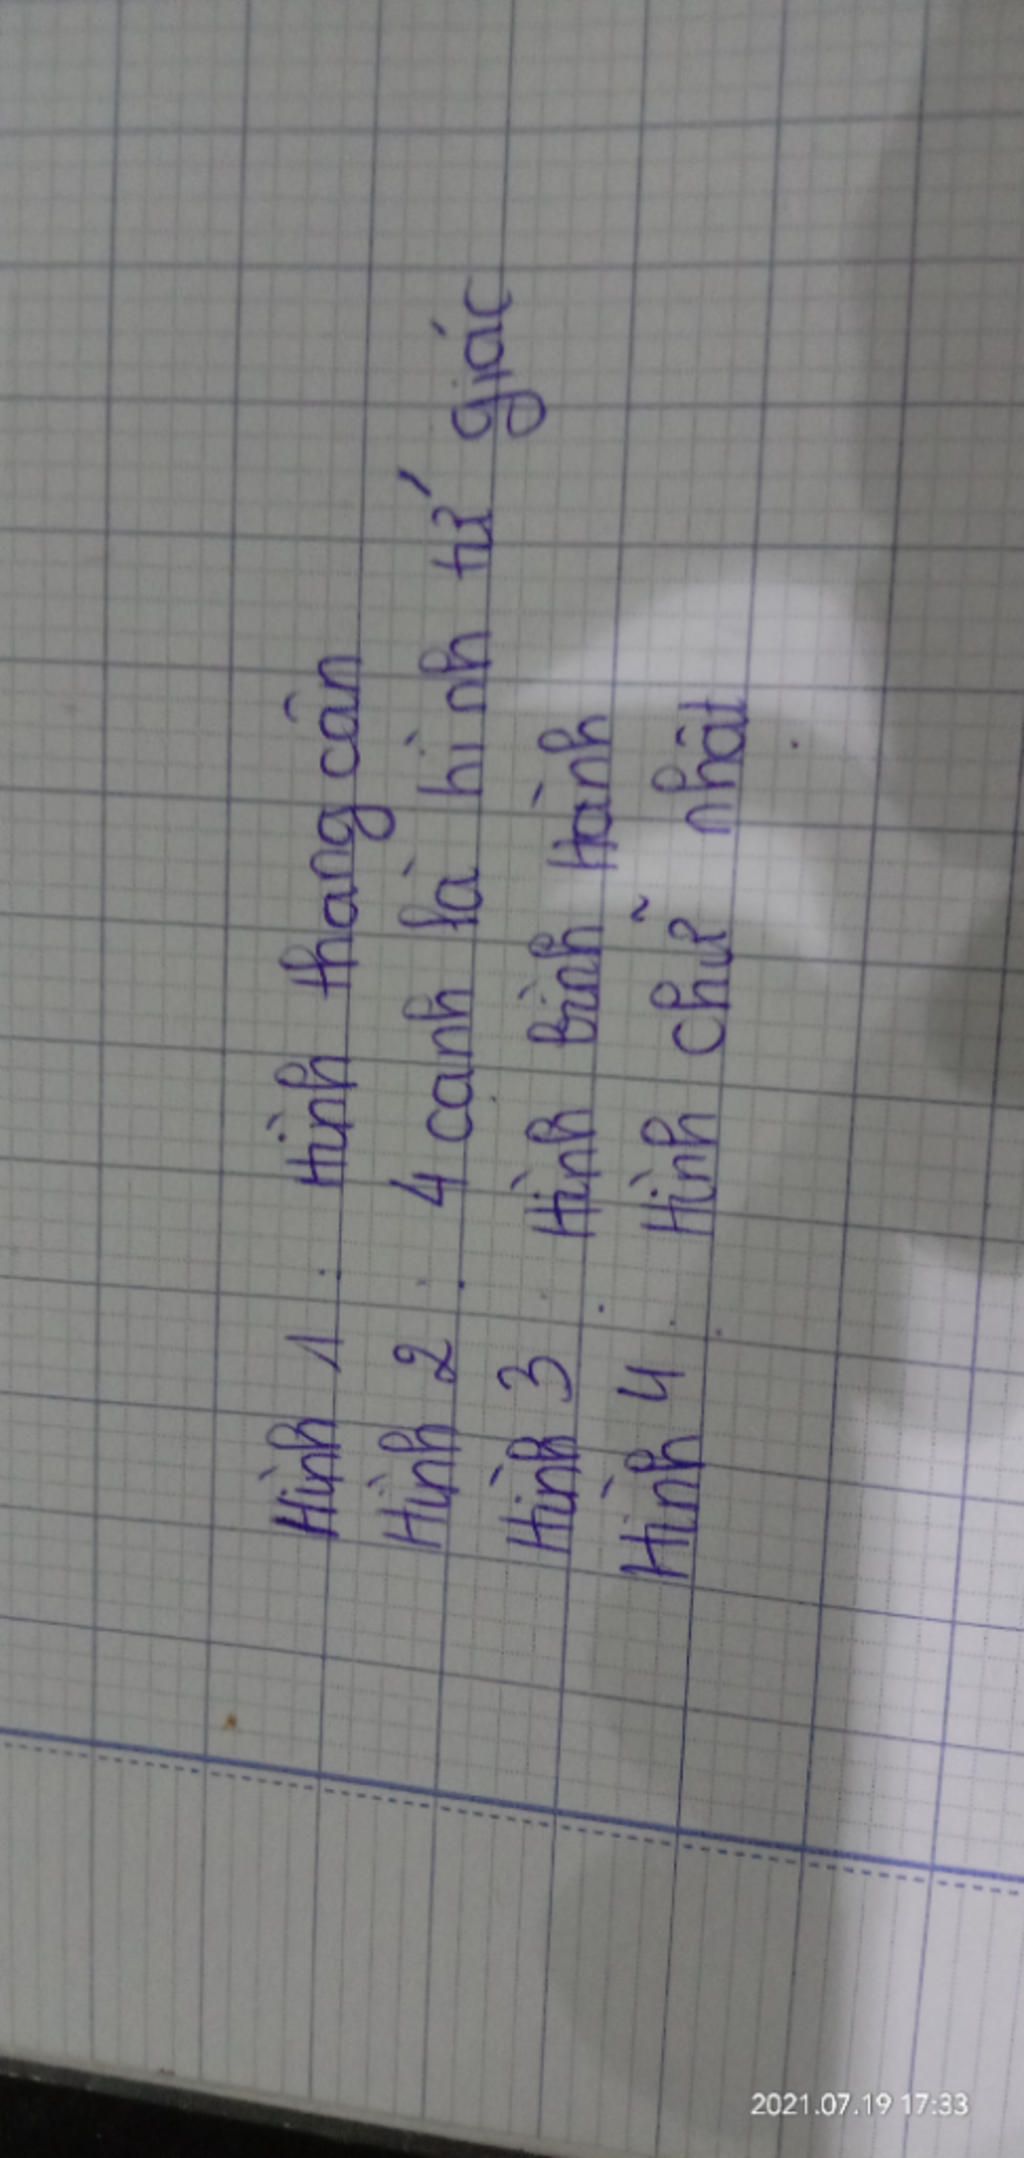 Hình 1 : Hình thang cân
Hình 2 : 4 canh là hình tứ giác
Hình 3 : Hình bình Hành
Hình 4 : Hình chữ nhât
2021.07.19 17:33